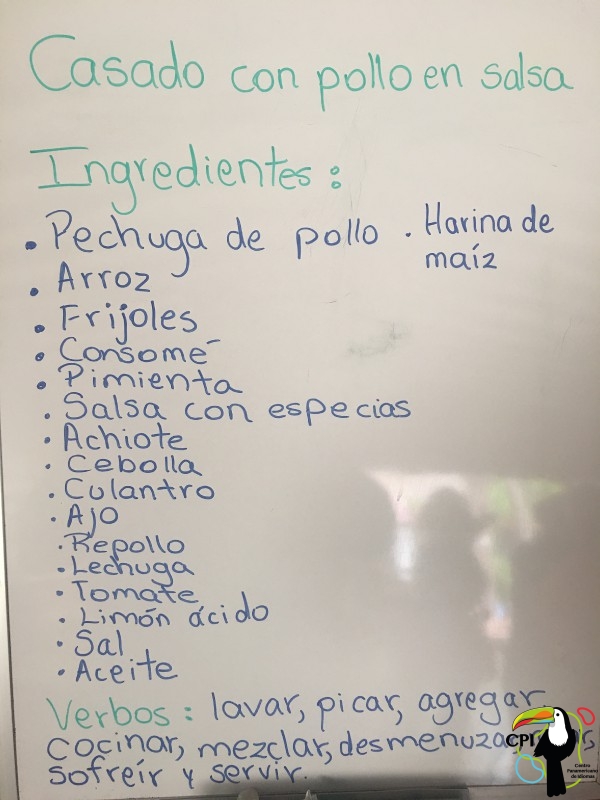 Casado con pollo en salsa
Ingredientes:
• Pechuga de pollo
• Harina de
maíz
• Arroz
• Frijoles
• Consomé
• Pimienta
• Salsa con especias
• Achiote
• Cebolla
• Culantro
• Ajo
• Repollo
• Lechuga
• Tomate
• Limón ácido
• Sal
• Aceite
Verbos: lavar, picar, agregar
cocinar, mezclar, desmenuzar
sofreír y servir.
CPI
Centro
Panamericano
de Idiomas